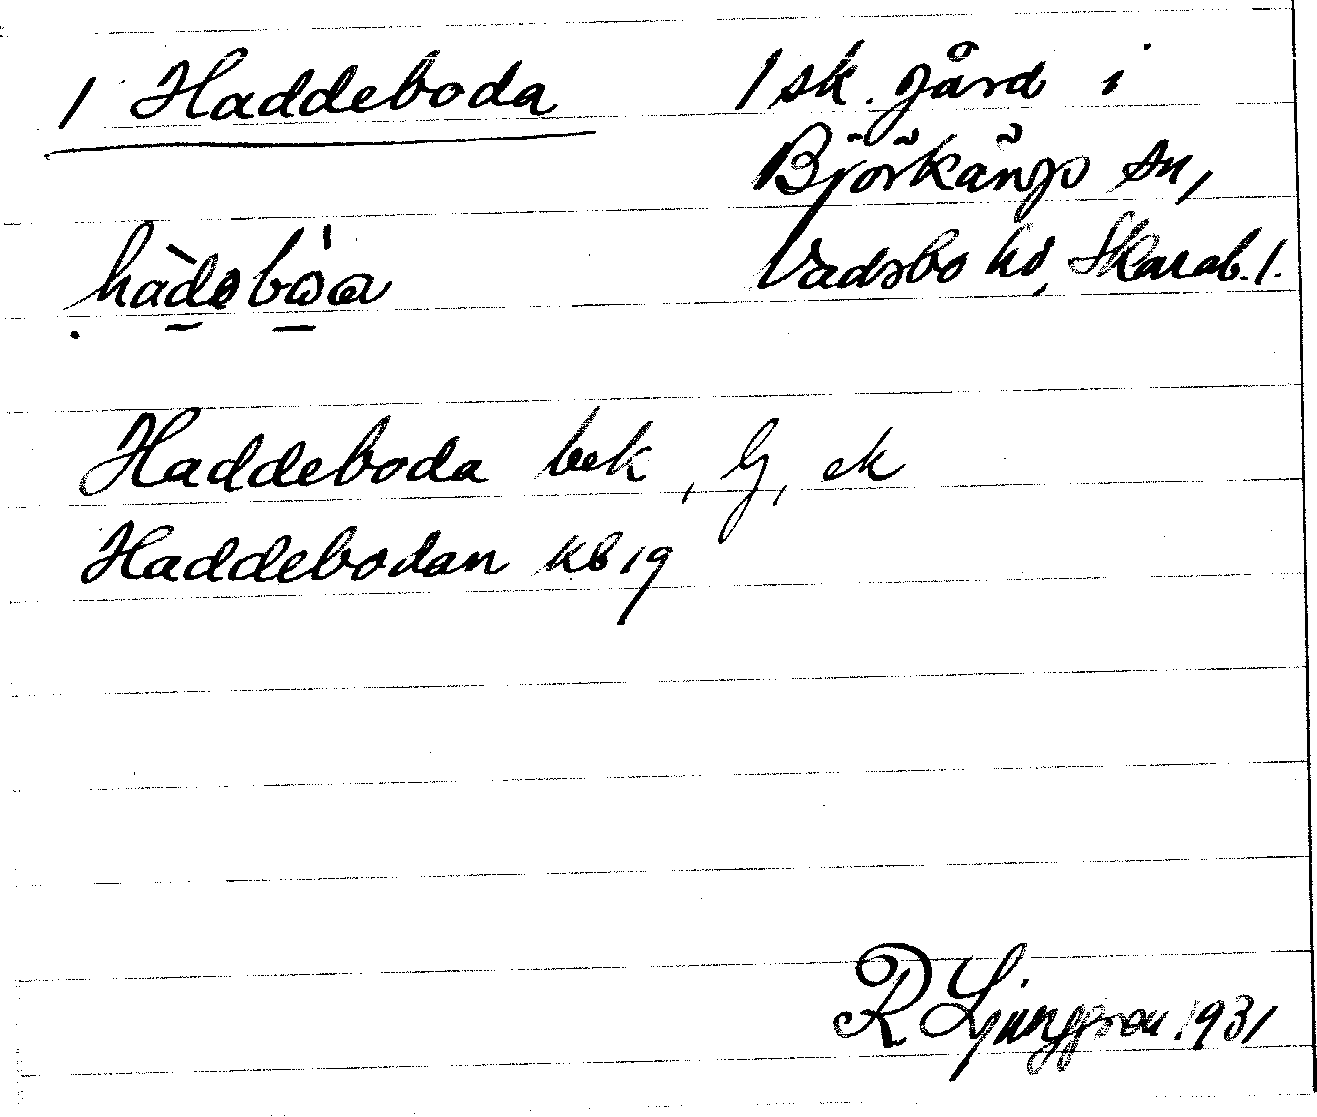 1 Haddeboda 1 sk. gård i
Björkängs sn,
Vadsbo hd, Skarab. l.
Haddeboda bek, Gj, ek
Haddebodan KB 19
R Ljunggren 1931